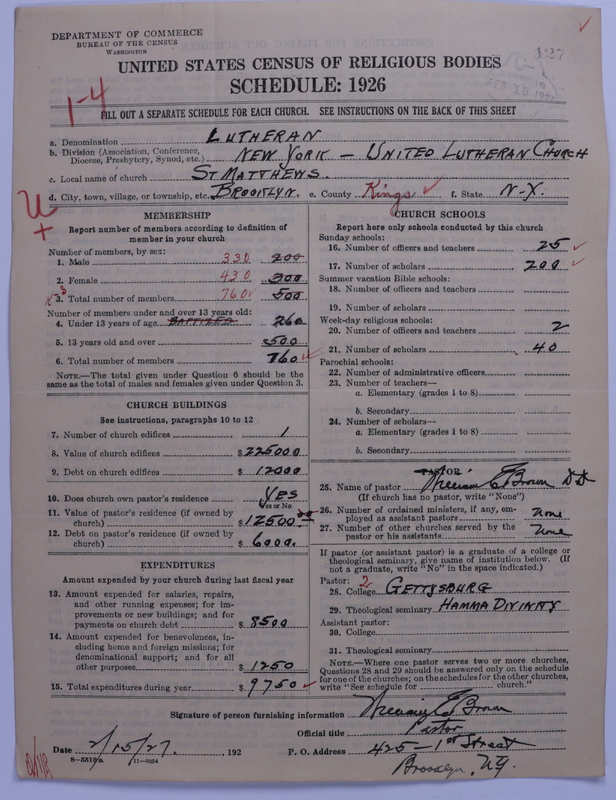 DEPARTMENT OF COMMERCE
BUREAU OF THE CENSUS
WASHINGTON
127
UNITED STATES CENSUS OF RELIGIOUS BODIES
SCHEDULE: 1926
1-4
FILL OUT A SEPARATE SCHEDULE FOR EACH CHURCH. SEE INSTRUCTIONS ON THE BACK OF THIS SHEET
a. Denomination LUTHERAN
b. Division (Association, Conference, Diocese, Presbytery, Synod, etc.) NEW YORK - UNITED LUTHERAN CHURCH
c. Local name of church ST MATTHEWS.
d. City, town, village, or township, etc. BROOKLYN. e. County Kings f. State N-Y.
MEMBERSHIP
Report number of members according to definition of
member in your church
Number of members, by sex:
1. Male 330 200
2. Female 430 300
3. Total number of members 760 500
Number of members under and over 13 years old:
4. Under 13 years of age BAPTIZED 260
5. 13 years old and over 500
6. Total number of members 760
NOTE.—The total given under Question 6 should be the
same as the total of males and females given under Question 3.
CHURCH BUILDINGS
See instructions, paragraphs 10 to 12
7. Number of church edifices 1
8. Value of church edifices $225000
9. Debt on church edifices $12000
10. Does church own pastor's residence YES
Yes or No
11. Value of pastor's residence (if owned by
church) $12500 00
12. Debt on pastor's residence (if owned by
church) $6000.
EXPENDITURES
Amount expended by your church during last fiscal year
13. Amount expended for salaries, repairs,
and other running expenses; for im-
provements or new buildings; and for
payments on church debt $8500
14. Amount expended for benevolences, in-
cluding home and foreign missions; for
denominational support; and for all
other purposes $1250
15. Total expenditures during year $9750
CHURCH SCHOOLS
Report here only schools conducted by this church
Sunday schools:
16. Number of officers and teachers 25
17. Number of scholars 200
Summer vacation Bible schools:
18. Number of officers and teachers
19. Number of scholars
Week-day religious schools:
20. Number of officers and teachers 2
21. Number of scholars 40
Parochial schools:
22. Number of administrative officers
23. Number of teachers—
a. Elementary (grades 1 to 8)
b. Secondary
24. Number of scholars—
a. Elementary (grades 1 to 8)
b. Secondary
PASTOR
25. Name of pastor William E Brown DD
(If church has no pastor, write "None")
26. Number of ordained ministers, if any, em-
ployed as assistant pastors None
27. Number of other churches served by the
pastor or his assistants None
If pastor (or assistant pastor) is a graduate of a college or
theological seminary, give name of institution below. (If
not a graduate, write "No" in the space indicated.)
Pastor: 2
28. College GETTYSBURG
29. Theological seminary HAMMA DIVINITY
Assistant pastor:
30. College
31. Theological seminary
NOTE.—Where one pastor serves two or more churches,
Questions 28 and 29 should be answered only on the schedule
for one of the churches; on the schedules for the other churches,
write "See schedule for church."
Signature of person furnishing information William E Brown
Official title Pastor
Date 2/15/27. 192 P. O. Address 425-1st Street
8-3318a 11-9034 Brooklyn. N.Y.